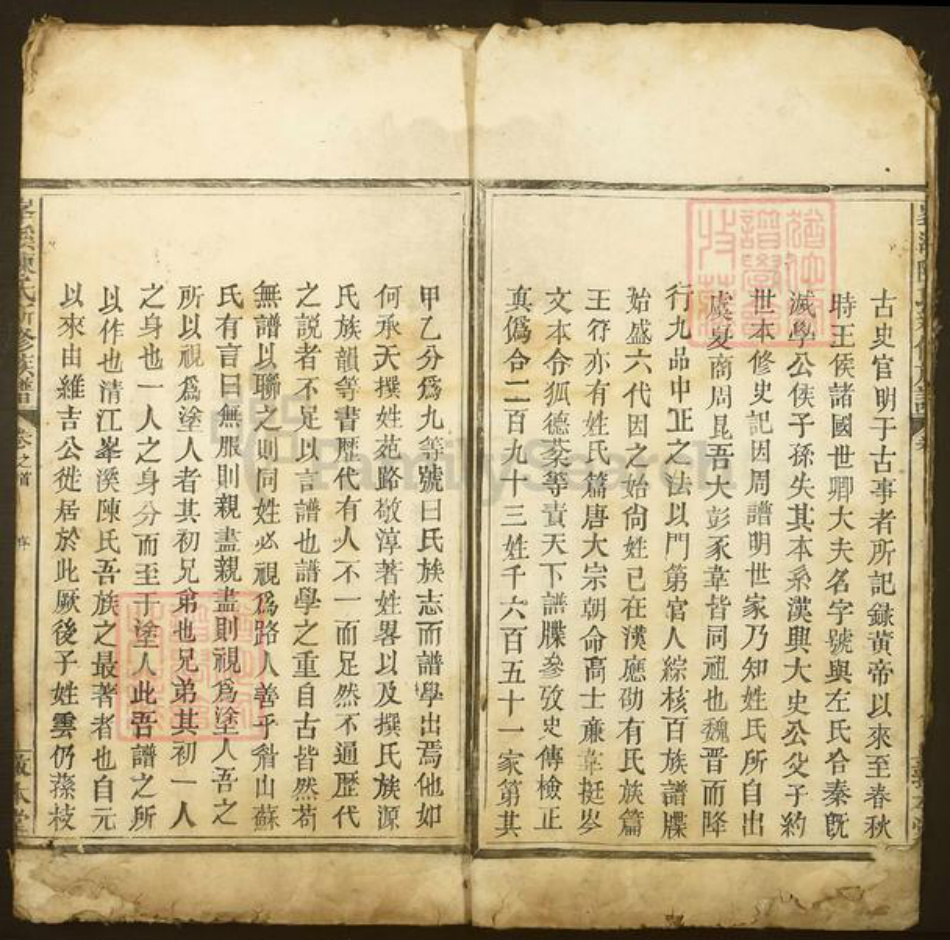 古史官明于古事者所記録黄帝以來至春秋
時王侯諸國世卿大夫名字號與左氏合秦既
滅學公侯子孫失其本系漢興大史公父子約
世本修史記因周譜明世家乃知姓氏所自出
虞夏商周昆吾大彭豕韋皆同祖也魏晋而降
行九品中正之法以門第官人綜核百族譜牒
始盛六代因之始尙姓已在漢應劭有氏族篇
王符亦有姓氏篇唐大宗朝命高士亷韋挺岑
文本令狐德棻等責天下譜牒參攷史傳檢正
真僞合二百九十三姓千六百五十一家第其
甲乙分爲九等號曰氏族志而譜學出焉他如
何承天撰姓苑路敬淳著姓畧以及撰氏族源
氏族韻等書歷代有人不一而足然不通歷代
之説者不足以言譜也譜學之重自古皆然苟
無譜以聯之則同姓必視爲路人善乎眉山蘇
氏有言曰無服則親盡親盡則視爲塗人吾之
所以視爲塗人者其初兄弟也兄弟其初一人
之身也一人之身分而至于塗人此吾譜之所
以作也清江峯溪陳氏吾族之最著者也自元
以來由維吉公徙居於此厥後子姓雲仍蓀枝
峯溪陳氏新修族譜 卷之首 序 敦本堂
FamilySearch